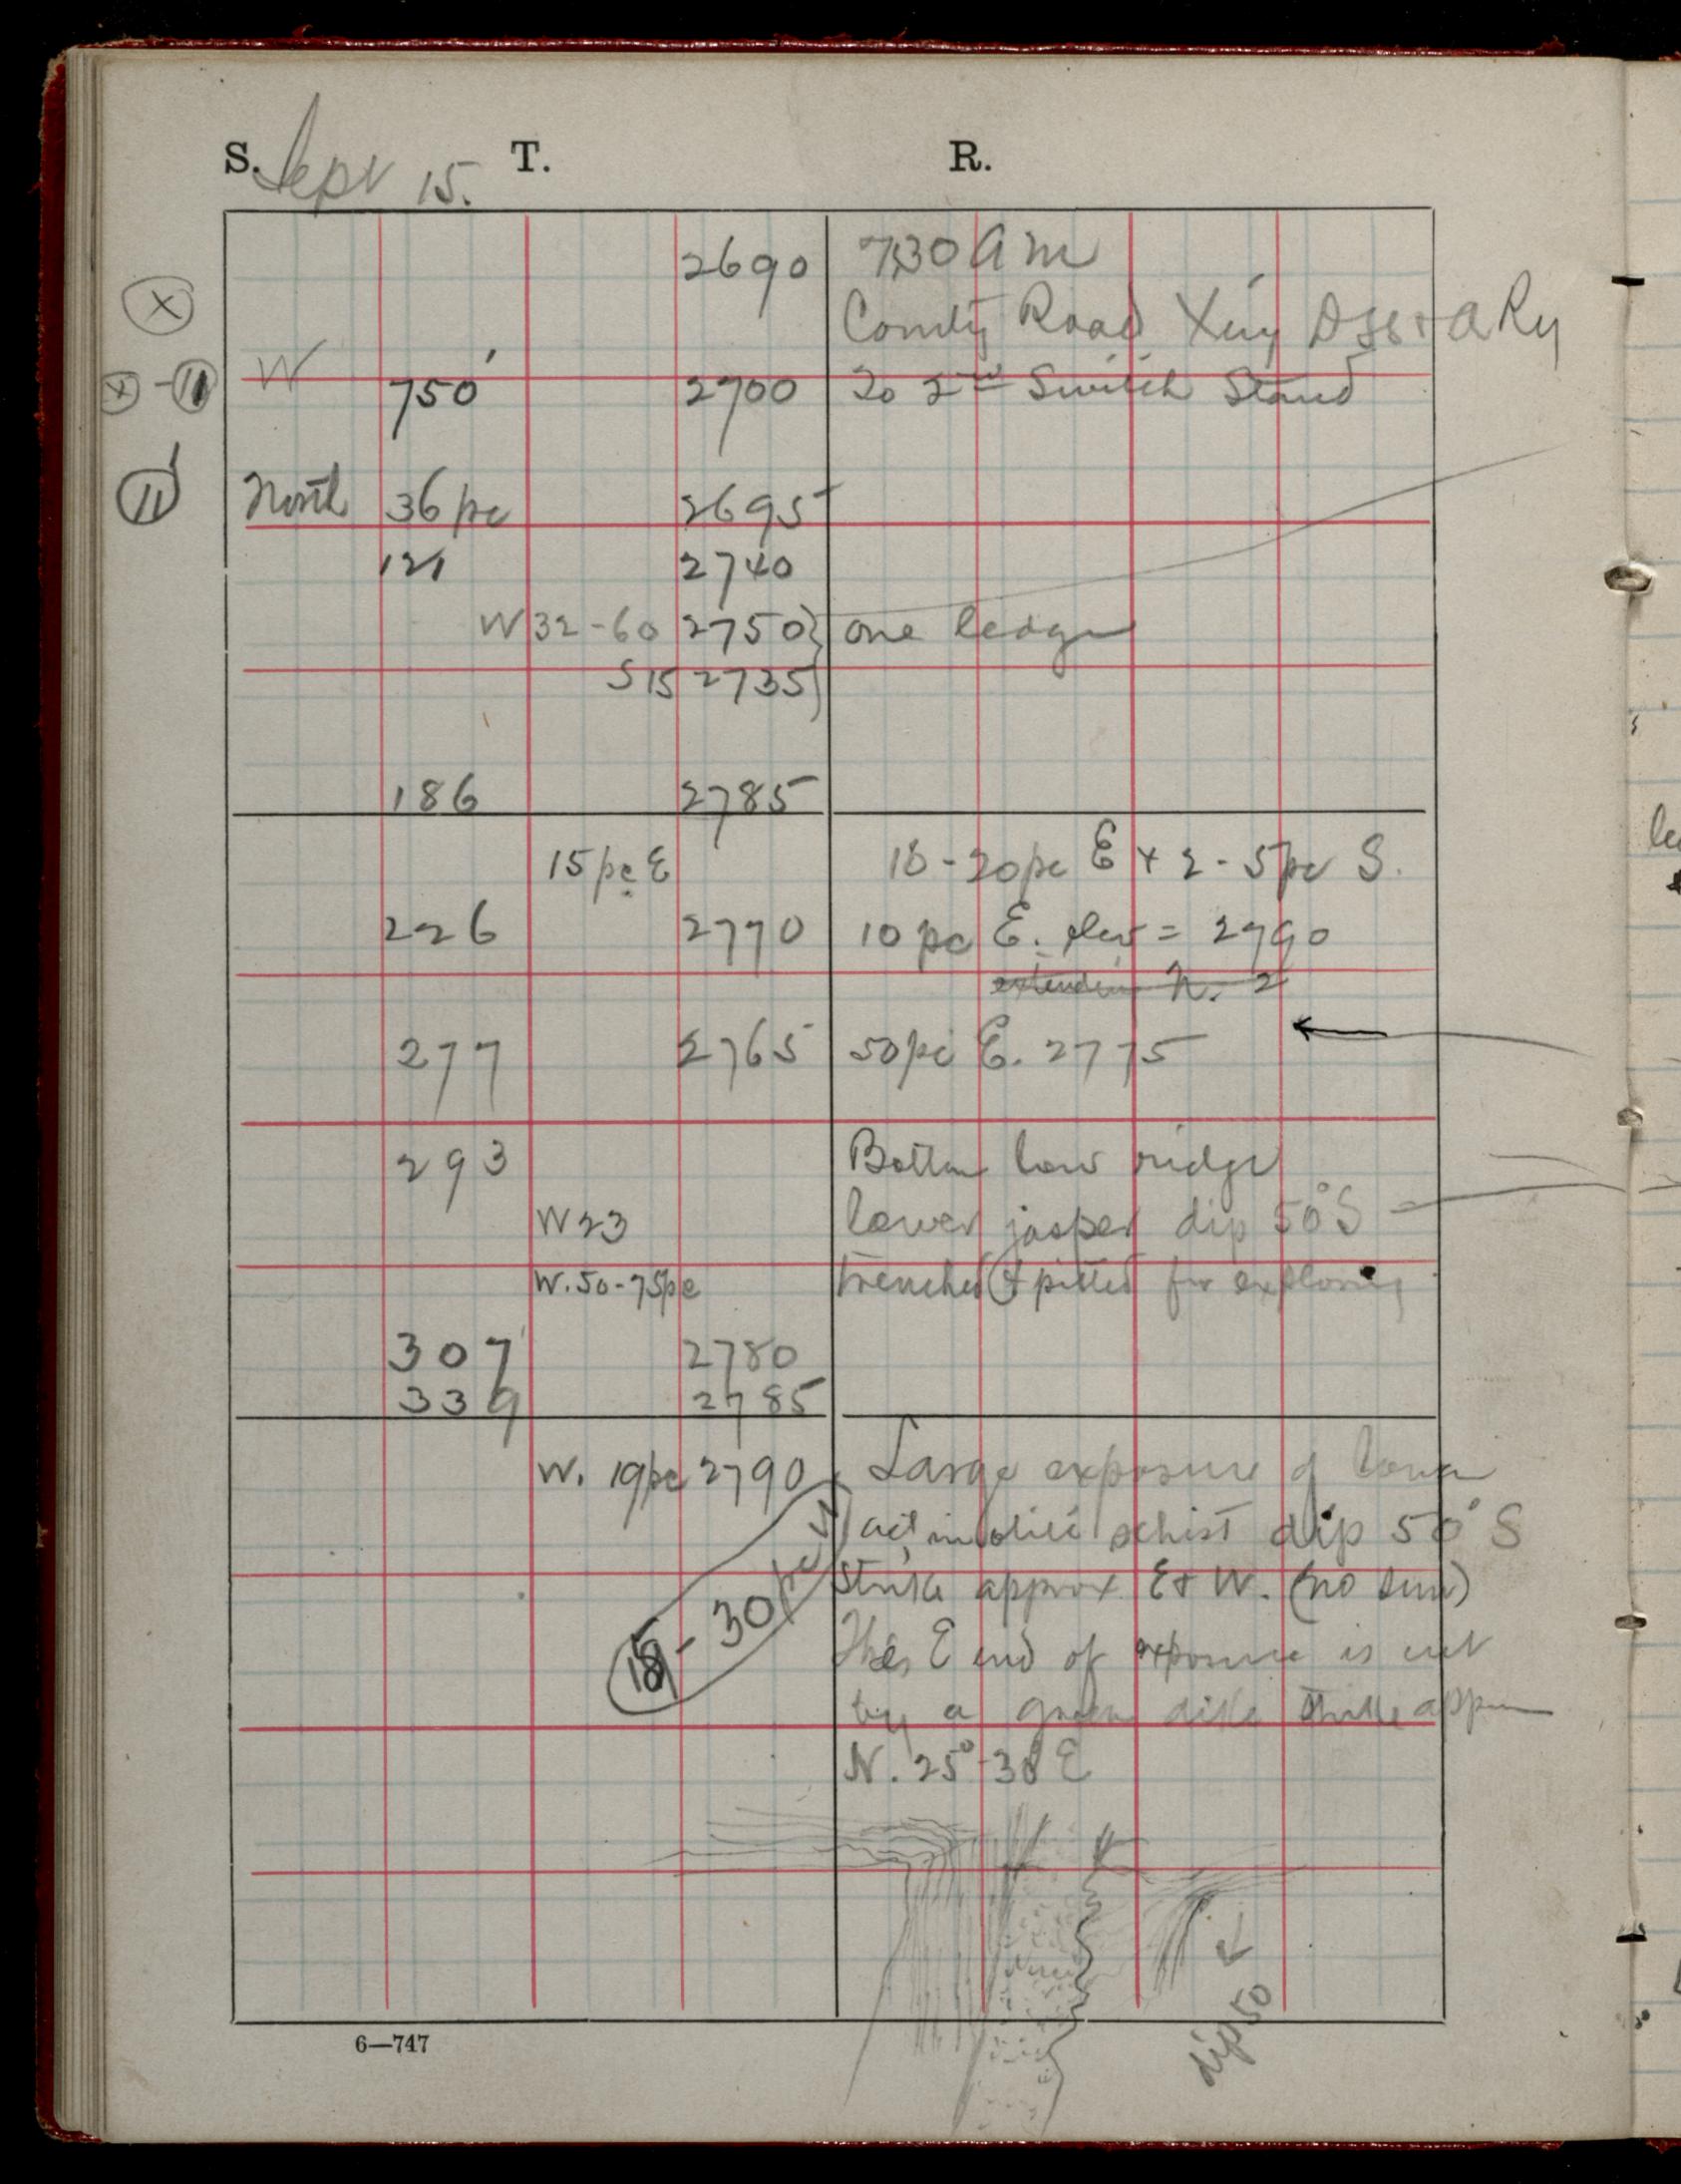 S. T. R.
Sept 15.
2690 7,30 a m
X County Road Xing D S S + A Ry
X - 11 W 750' 2700 To 2nd Switch Stand
11 North 36 pc 2695
121 2740
W 32-60 2750 } one ledge
S 15 2735 }
186 2785
15 pc E 18-20 pc E + 2-5 pc S.
226 2770 10 pc E. elev = 2790
extending N. 2
277 2765 50 pc E. 2775
293 Bottom low ridge
W 23 lower jasper dip 50° S
W. 50-75 pc trenched & pitted for exploring
307 2780
339 2785
W. 19 pc 2790 Large exposure of lower
actinolitic schist dip 50° S
Strike approx E + W. (no sun)
18 - 30 pc
This E end of exposure is cut
by a green dike strike approx
N. 25°-30 E
dip 50
6—747